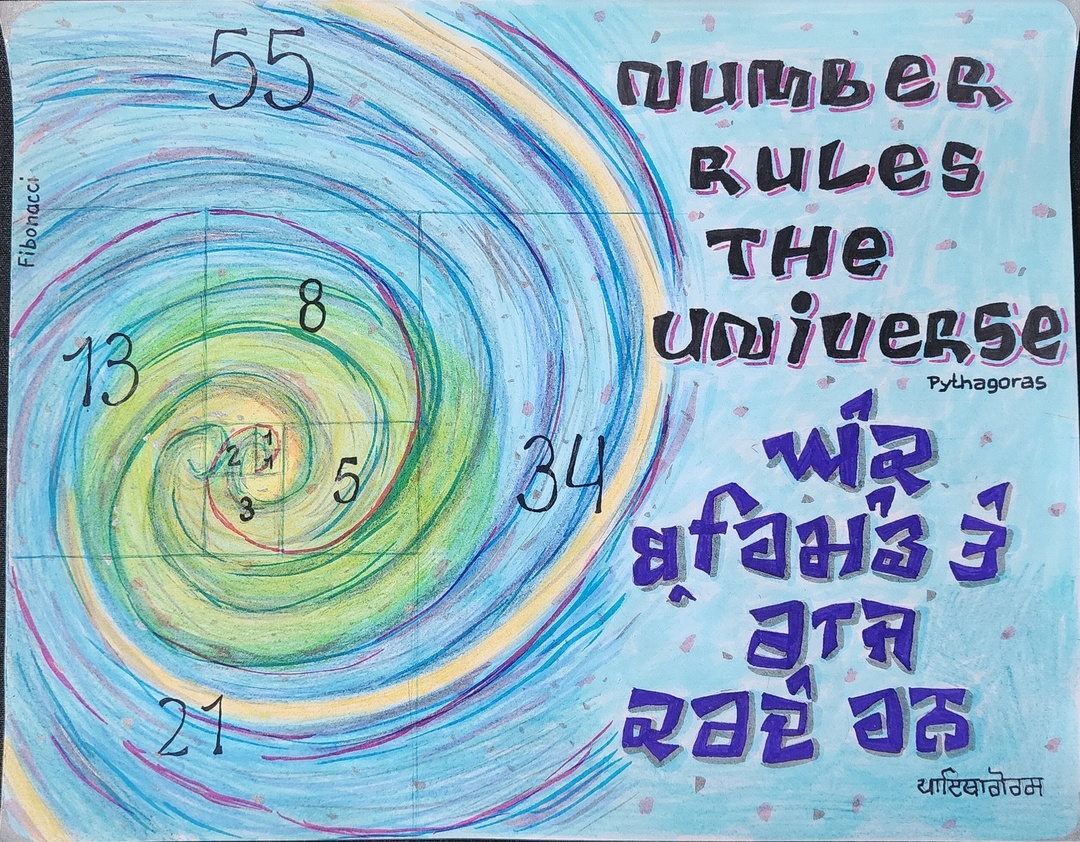 55
Fibonacci
8
13
1
2
1
5
3
34
21
NUMBER
RULES
THE
UNIVERSE
Pythagoras
ਅੰਕ
ਬ੍ਰਹਿਮੰਡ ਤੇ
ਰਾਜ
ਕਰਦੇ ਹਨ
ਪਾਇਥਾਗੋਰਸ